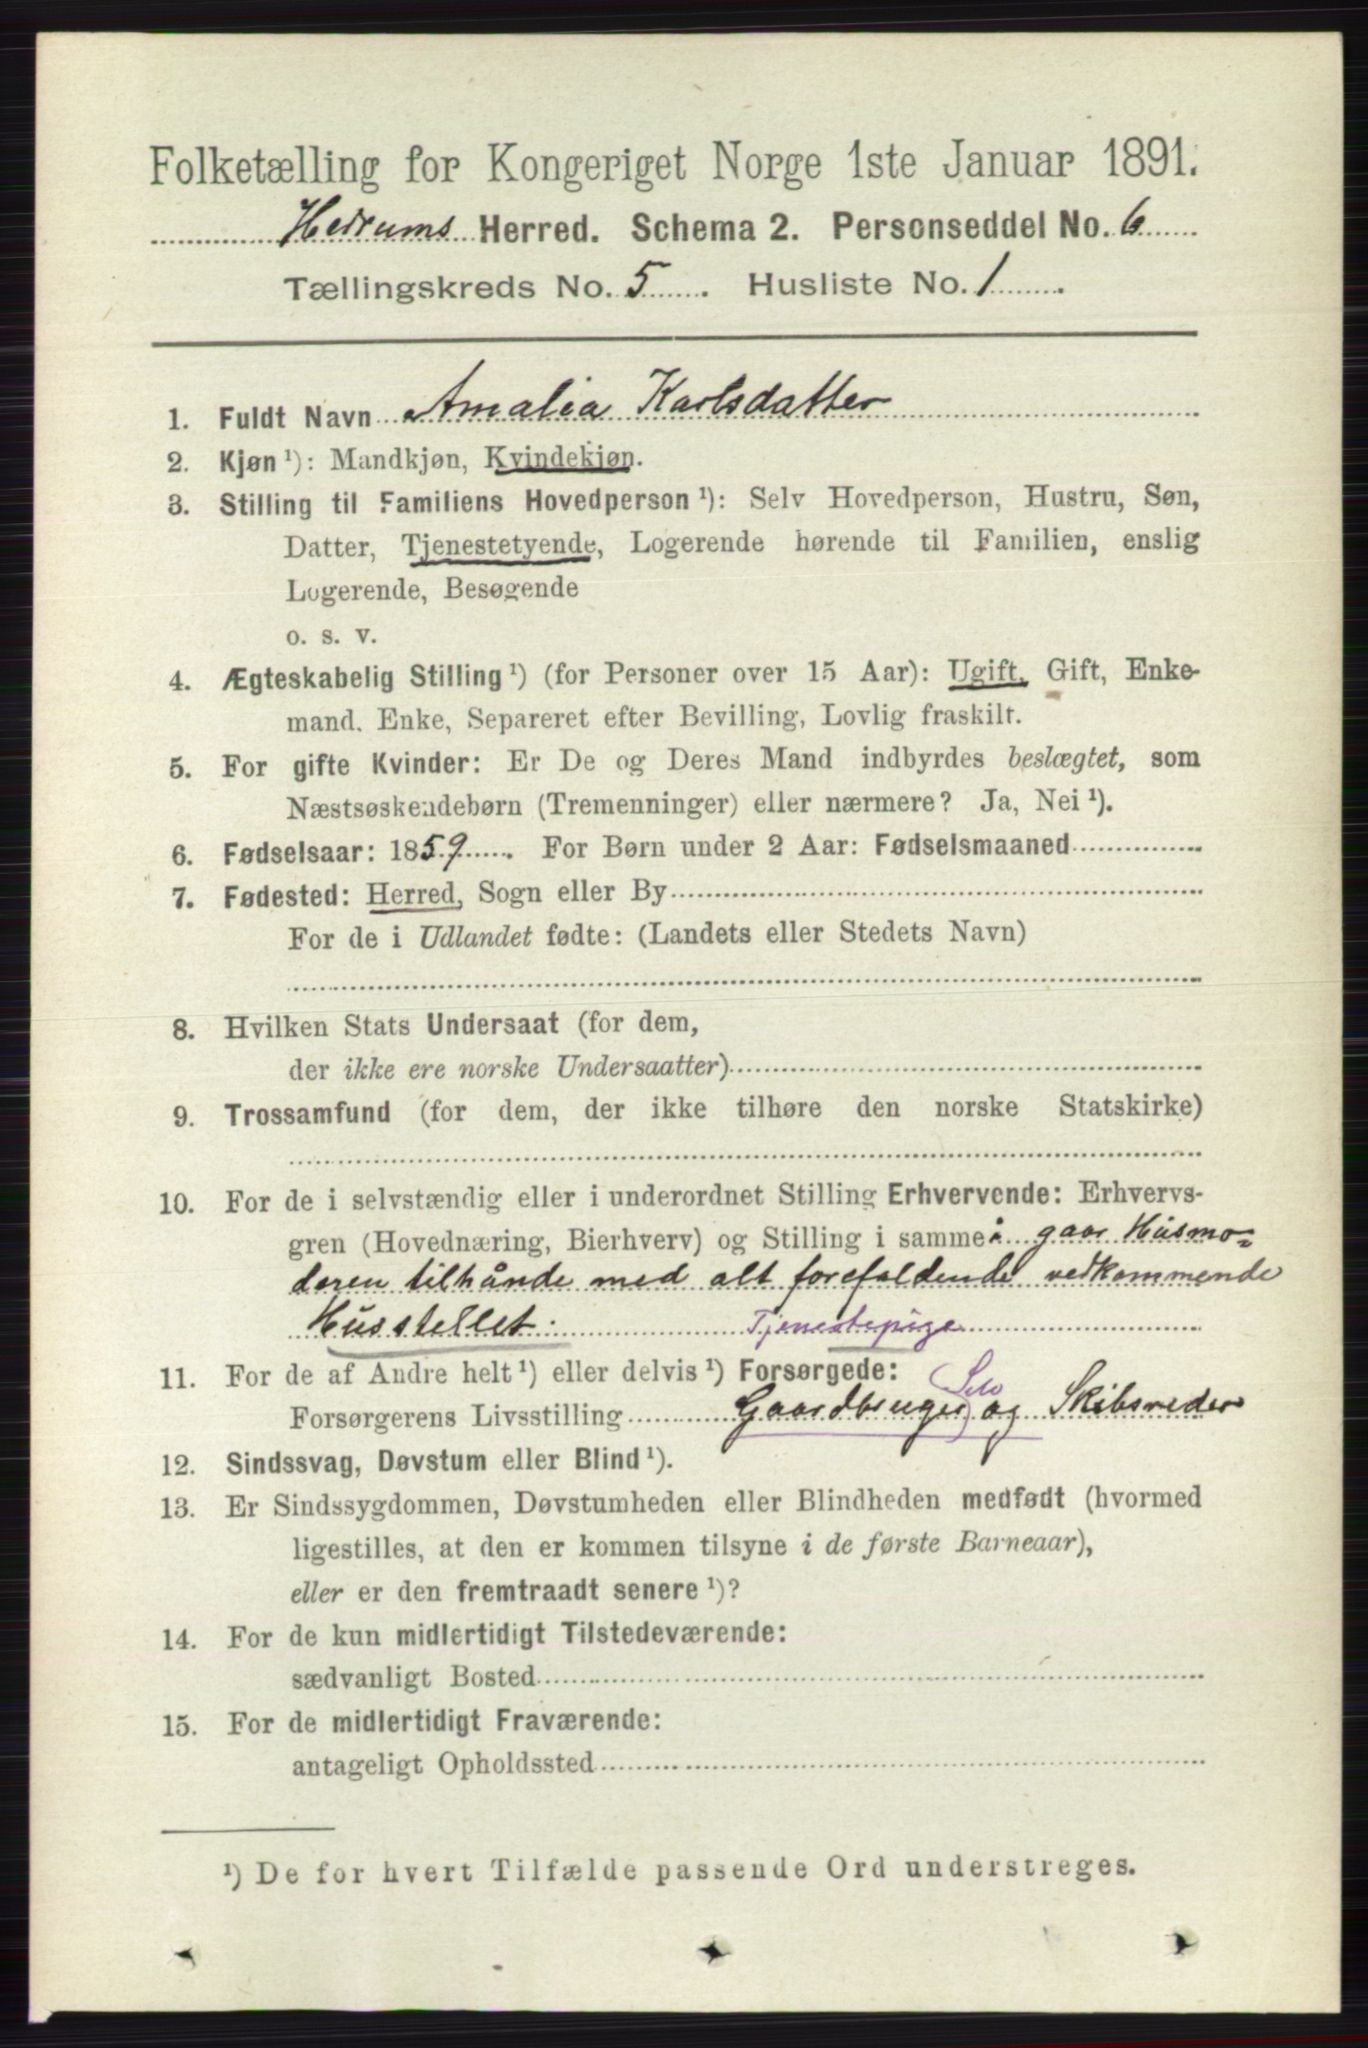 Folketælling for Kongeriget Norge 1ste Januar 1891.
Hedrums Herred. Schema 2. Personseddel No. 6
Tællingskreds No. 5. Husliste No. 1.
1. Fuldt Navn Amalia Karlsdatter
2. Kjøn ¹): Mandkjøn, Kvindekjøn.
3. Stilling til Familiens Hovedperson ¹): Selv Hovedperson, Hustru, Søn,
Datter, Tjenestetyende, Logerende hørende til Familien, enslig
Logerende, Besøgende
o. s. v.
4. Ægteskabelig Stilling ¹) (for Personer over 15 Aar): Ugift, Gift, Enke-
mand, Enke, Separeret efter Bevilling, Lovlig fraskilt.
5. For gifte Kvinder: Er De og Deres Mand indbyrdes beslægtet, som
Næstsøskendebørn (Tremenninger) eller nærmere? Ja, Nei ¹).
6. Fødselsaar: 1859. For Børn under 2 Aar: Fødselsmaaned
7. Fødested: Herred, Sogn eller By
For de i Udlandet fødte: (Landets eller Stedets Navn)
8. Hvilken Stats Undersaat (for dem,
der ikke ere norske Undersaatter)
9. Trossamfund (for dem, der ikke tilhøre den norske Statskirke)
10. For de i selvstændig eller i underordnet Stilling Erhvervende: Erhvervs-
gren (Hovednæring, Bierhverv) og Stilling i samme gaar Husmo-
deren tilhånde med alt forefaldende vedkommende
Husstellet. Tjenestepige
11. For de af Andre helt ¹) eller delvis ¹) Forsørgede: Selv
Forsørgerens Livsstilling Gaardbruger og Skibsreder
12. Sindssvag, Døvstum eller Blind ¹).
13. Er Sindssygdommen, Døvstumheden eller Blindheden medfødt (hvormed
ligestilles, at den er kommen tilsyne i de første Barneaar),
eller er den fremtraadt senere ¹)?
14. For de kun midlertidigt Tilstedeværende:
sædvanligt Bosted
15. For de midlertidigt Fraværende:
antageligt Opholdssted
¹) De for hvert Tilfælde passende Ord understreges.